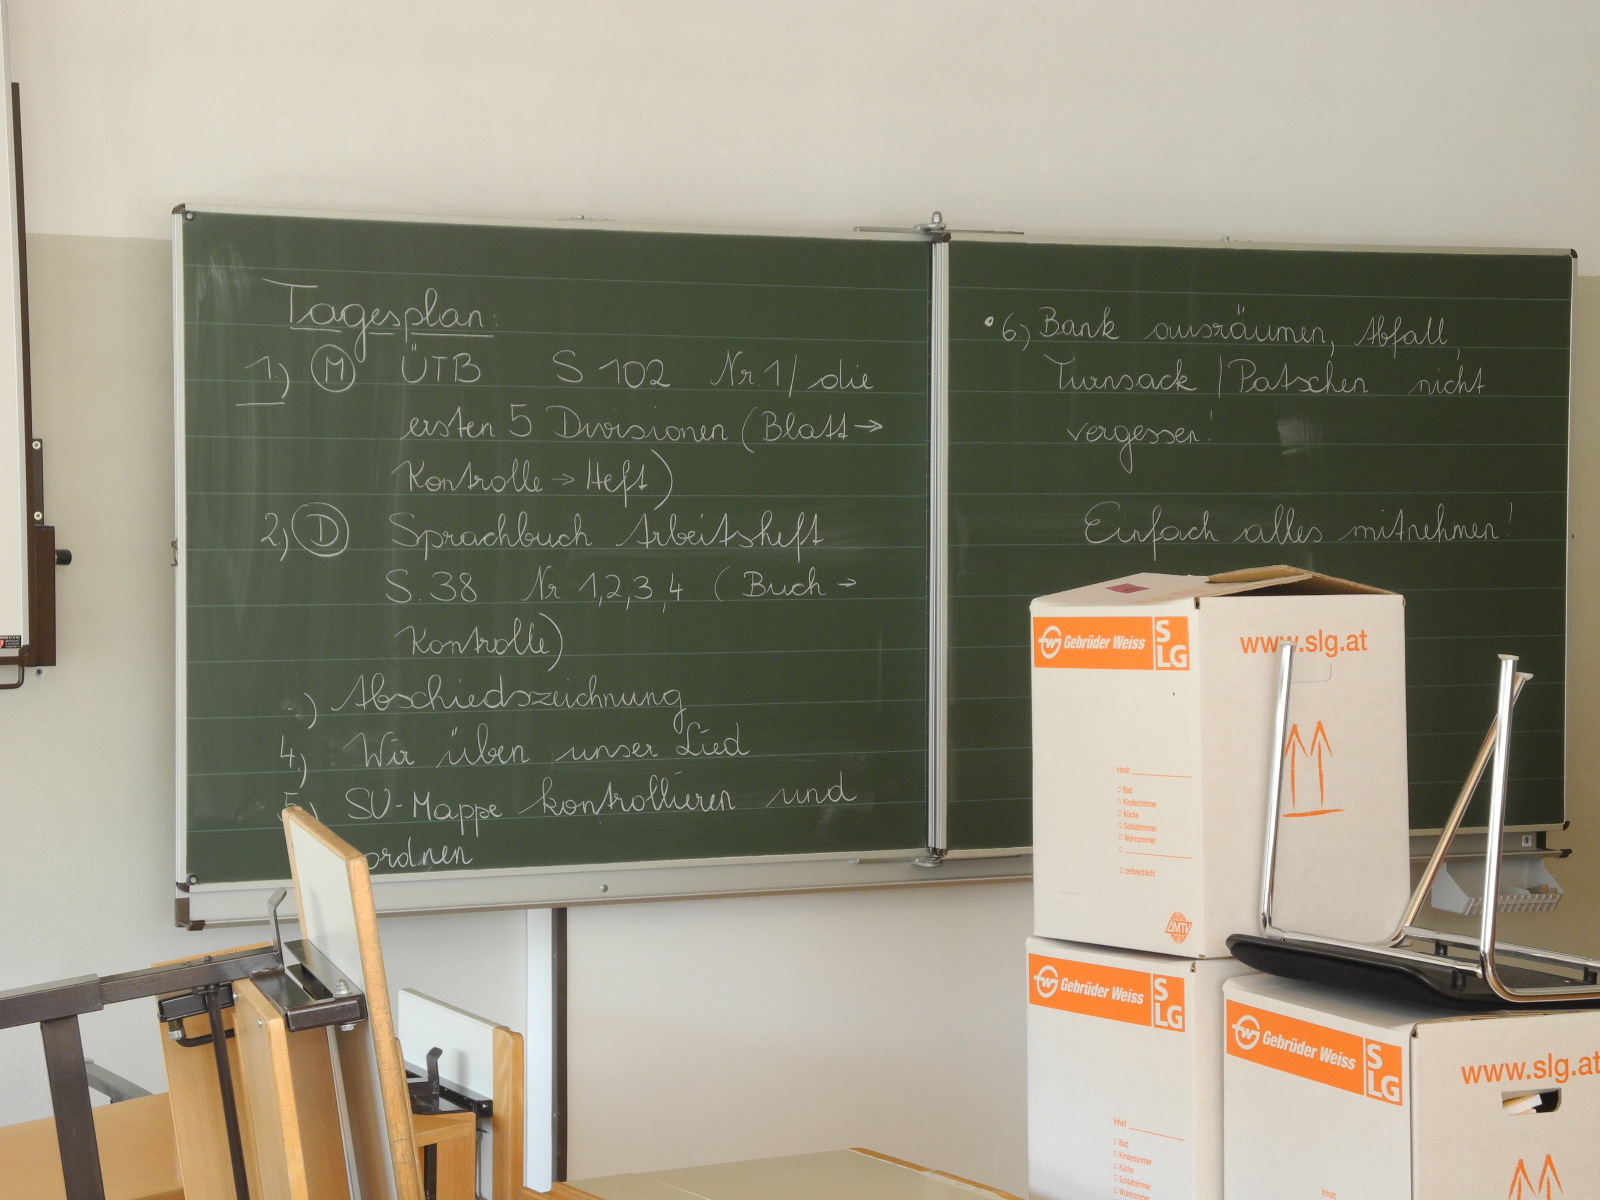 Tagesplan:
1.) M ÜTB S 102 Nr. 1/ die
ersten 5 Divisionen (Blatt →
Kontrolle → Heft)
2.) D Sprachbuch Arbeitsheft
S. 38 Nr 1,2,3,4 ( Buch →
Kontrolle)
) Abschiedszeichnung
4.) Wir üben unser Lied
5.) SU-Mappe kontrollieren und
ordnen
• 6.) Bank ausräumen, Abfall,
Turnsack / Patschen nicht
vergessen!
Einfach alles mitnehmen!
Gebrüder Weiss
S
LG
www.slg.at
Inhalt
Bad
Kinderzimmer
Küche
Schlafzimmer
Wohnzimmer
zerbrechlich!
ÖMTV
Gebrüder Weiss
S
LG
Inhalt
Bad
Kinderzimmer
Küche
Schlafzimmer
Wohnzimmer
Gebrüder Weiss
S
LG
www.slg.at
Inhalt